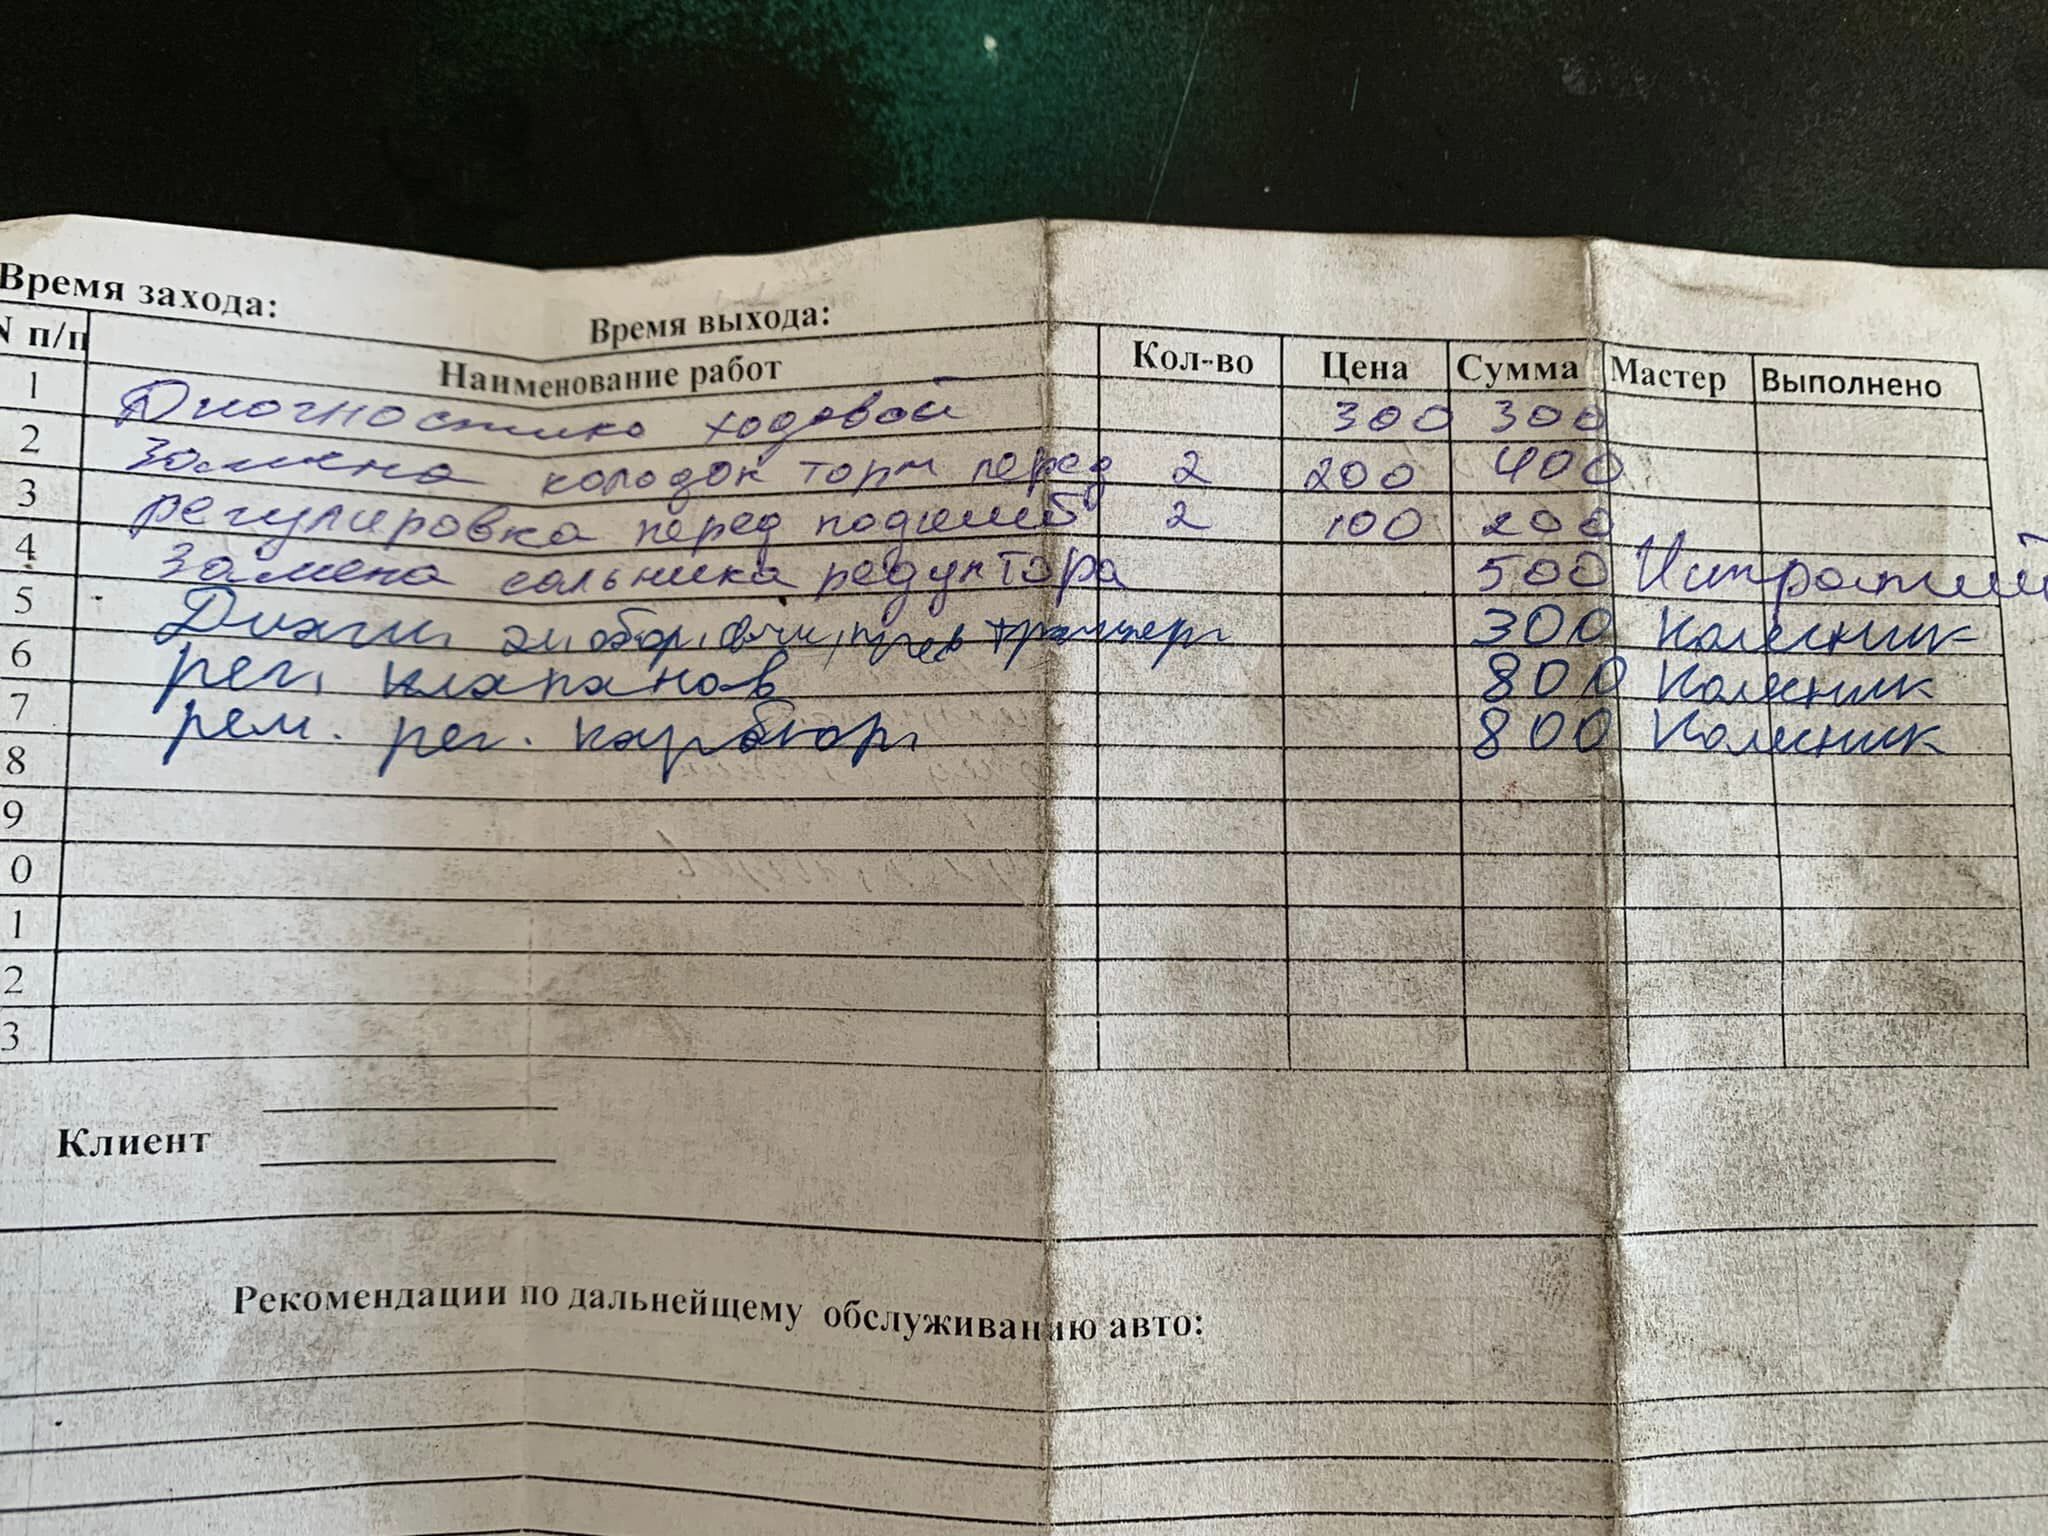 Время захода: Время выхода:
N п/п Наименование работ Кол-во Цена Сумма Мастер Выполнено
1 Диогностика ходовой 300 300
2 Замена колодок торм перед 2 200 400
3 регулировка перед подшиб 2 100 200
4 Замена сальника редуктора 500
5 Диагн. 300 Колесник
6 рег. клапанов 800 Колесник
7 рем. рег. карбюр. 800 Колесник
8
9
0
1
2
3
Клиент
Рекомендации по дальнейщему обслуживанию авто: